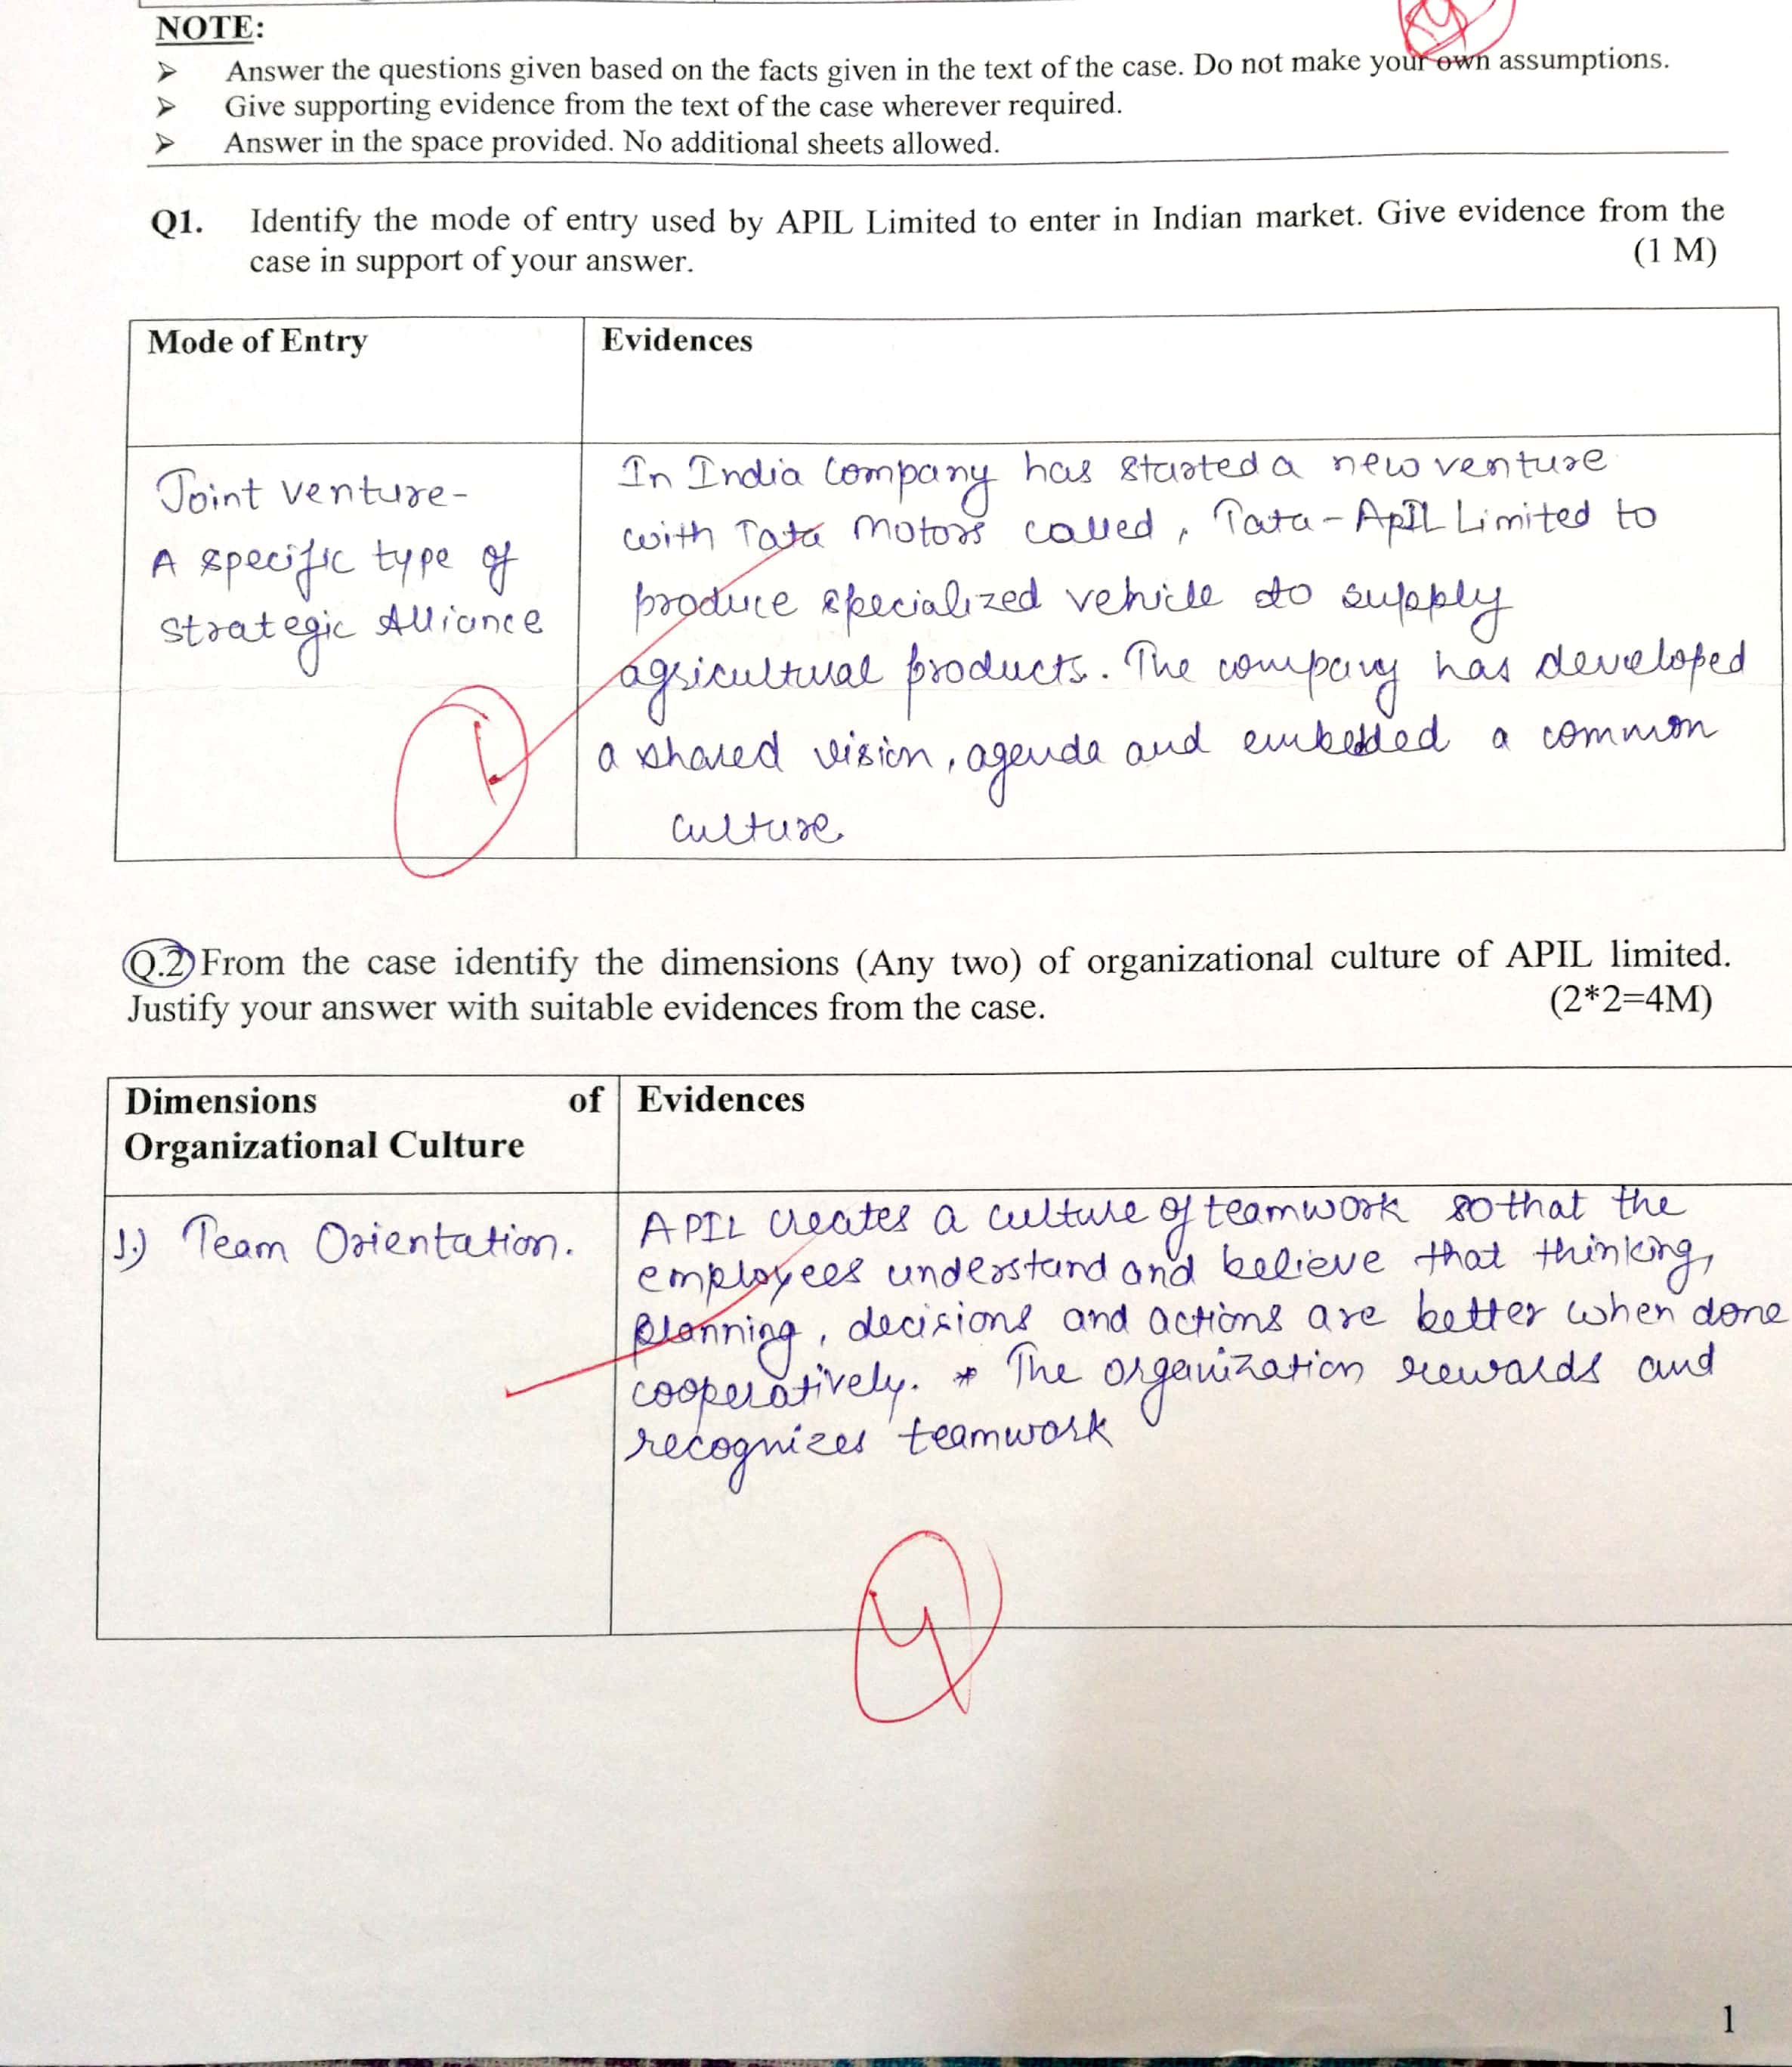 NOTE:
➢ Answer the questions given based on the facts given in the text of the case. Do not make your own assumptions.
➢ Give supporting evidence from the text of the case wherever required.
➢ Answer in the space provided. No additional sheets allowed.
Q1. Identify the mode of entry used by APIL Limited to enter in Indian market. Give evidence from the
case in support of your answer. (1 M)
Mode of Entry
Evidences
Joint venture-
A specific type of
strategic Alliance
1
In India Company has started a new venture
with Tata Motors called, Tata-ApIL Limited to
produce specialized vehicle to supply
agricultural products. The company has developed
a shared vision, agenda and embedded a common
culture.
Q.2 From the case identify the dimensions (Any two) of organizational culture of APIL limited.
Justify your answer with suitable evidences from the case. (2*2=4M)
Dimensions of
Organizational Culture
Evidences
1.) Team Orientation.
APIL creates a culture of teamwork so that the
employees understand and believe that thinking,
planning, decisions and actions are better when done
cooperatively. * The organization rewards and
recognizes teamwork
4
1